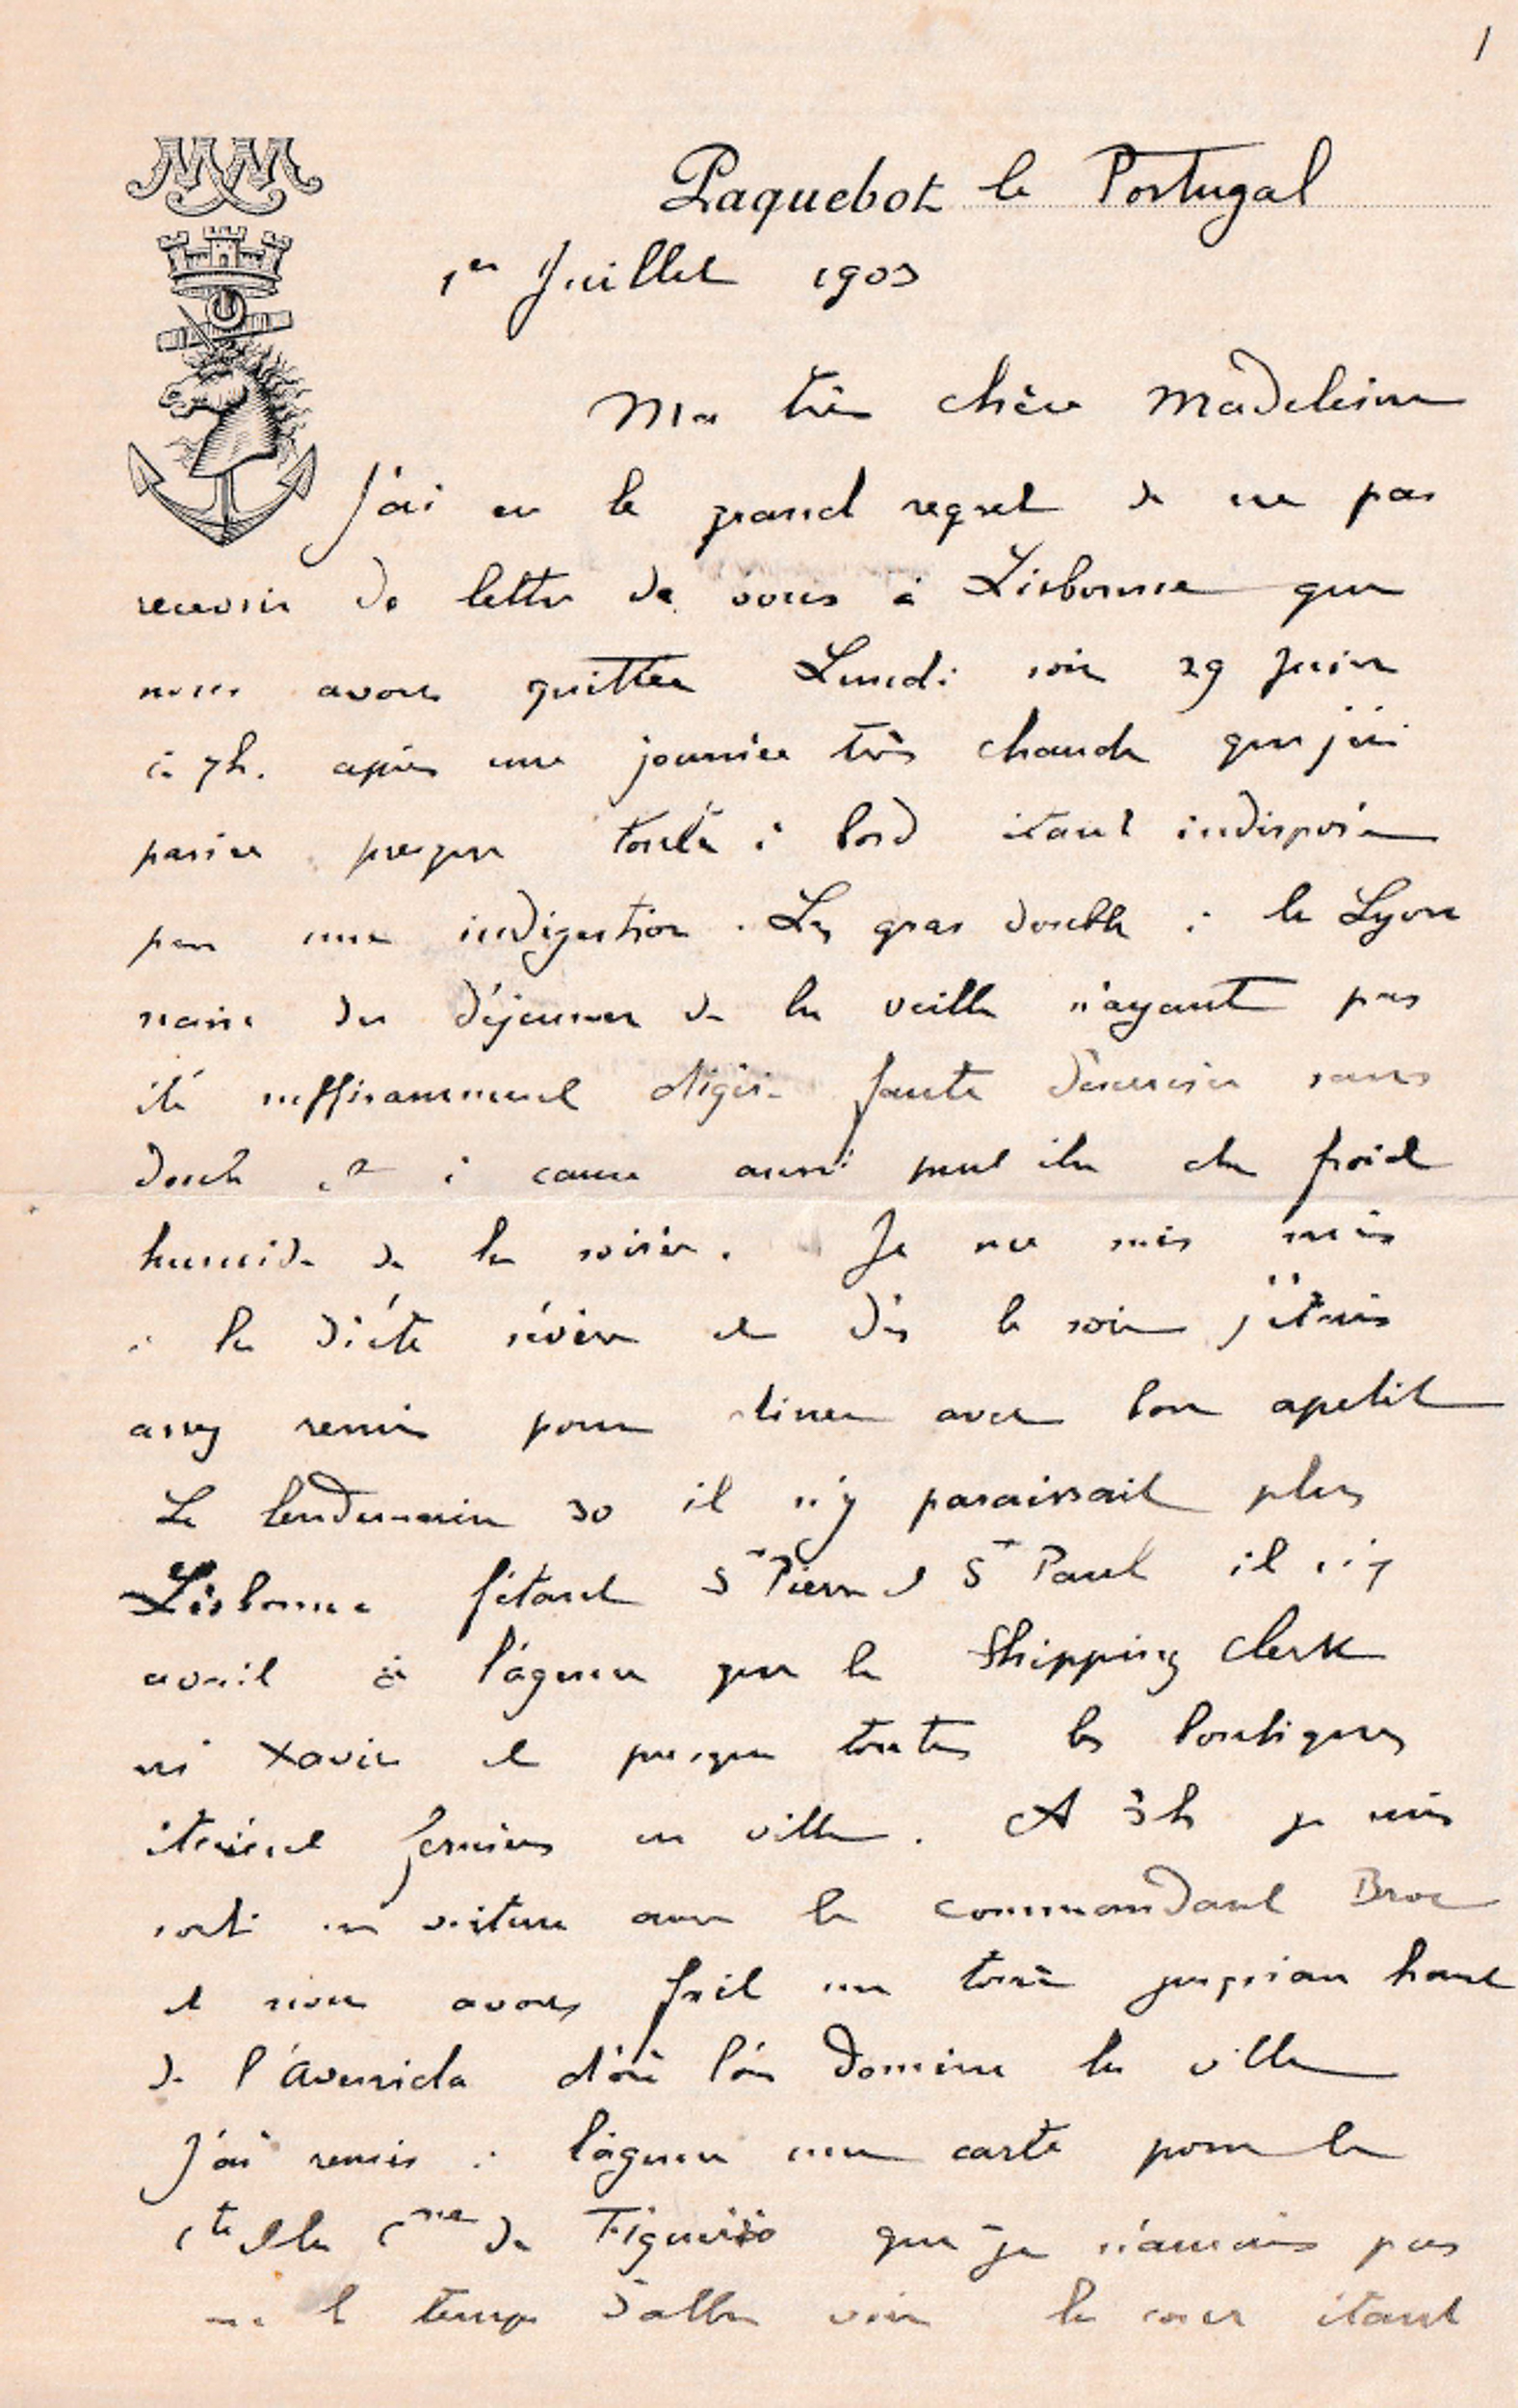 1
MM
Paquebot le Portugal
1er Juillet 1903
Ma très chère Madeleine
J'ai eu le grand regret de ne pas
recevoir de lettre de vous à Lisbonne que
nous avons quittée Lundi soir 29 Juin
à 7h. après une journée très chaude que j'ai
passée presque toute à bord étant indisposé
par une indigestion. Le gras double à la Lyon
naise du déjeuner de la veille n'ayant pas
été suffisamment digéré faute d'exercice sans
doute et à cause aussi peut être du froid
humide de la soirée. Je me suis mis
à la diète sévère et dès le soir j'étais
assez remis pour diner avec bon apetit
Le lendemain 30 il n'y paraissait plus
Lisbonne fêtant St Pierre et St Paul il n'y
avait à l'agence que le Shipping Clerk
ni Xavier et presque toutes les boutiques
étaient fermées en ville. A 3h je suis
sorti en voiture avec le commandant Broc
et nous avons fait un tour jusqu'au haut
de l'Avenida d'où l'on domine la ville
J'ai remis à l'agence une carte pour le
Cte et la Csse de que je n'aurais pas
eu le temps d'aller voir étant